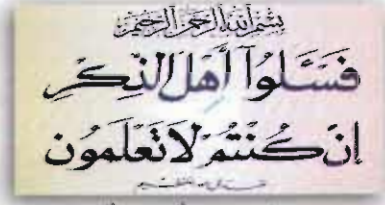 بسم الله الرحمن الرحيم
فسئلوا أهل الذكر
إن كنتم لا تعلمون